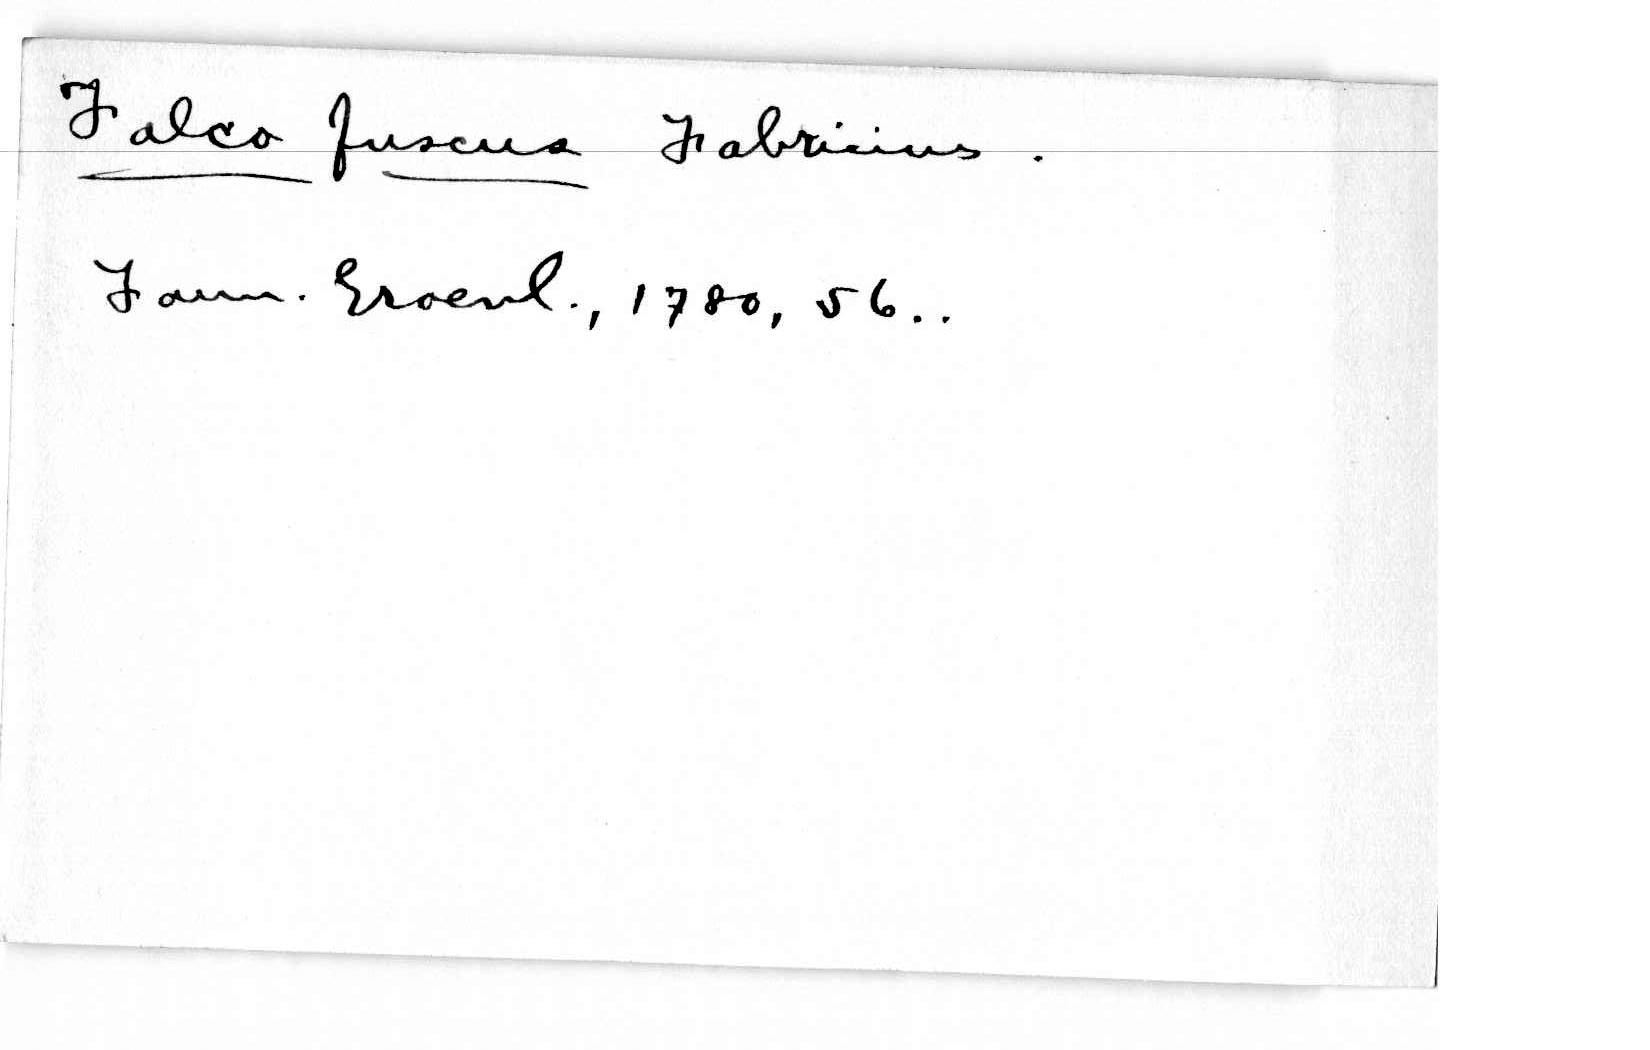 Falco fuscus Fabricius.
Faun. Groenl., 1780, 56..